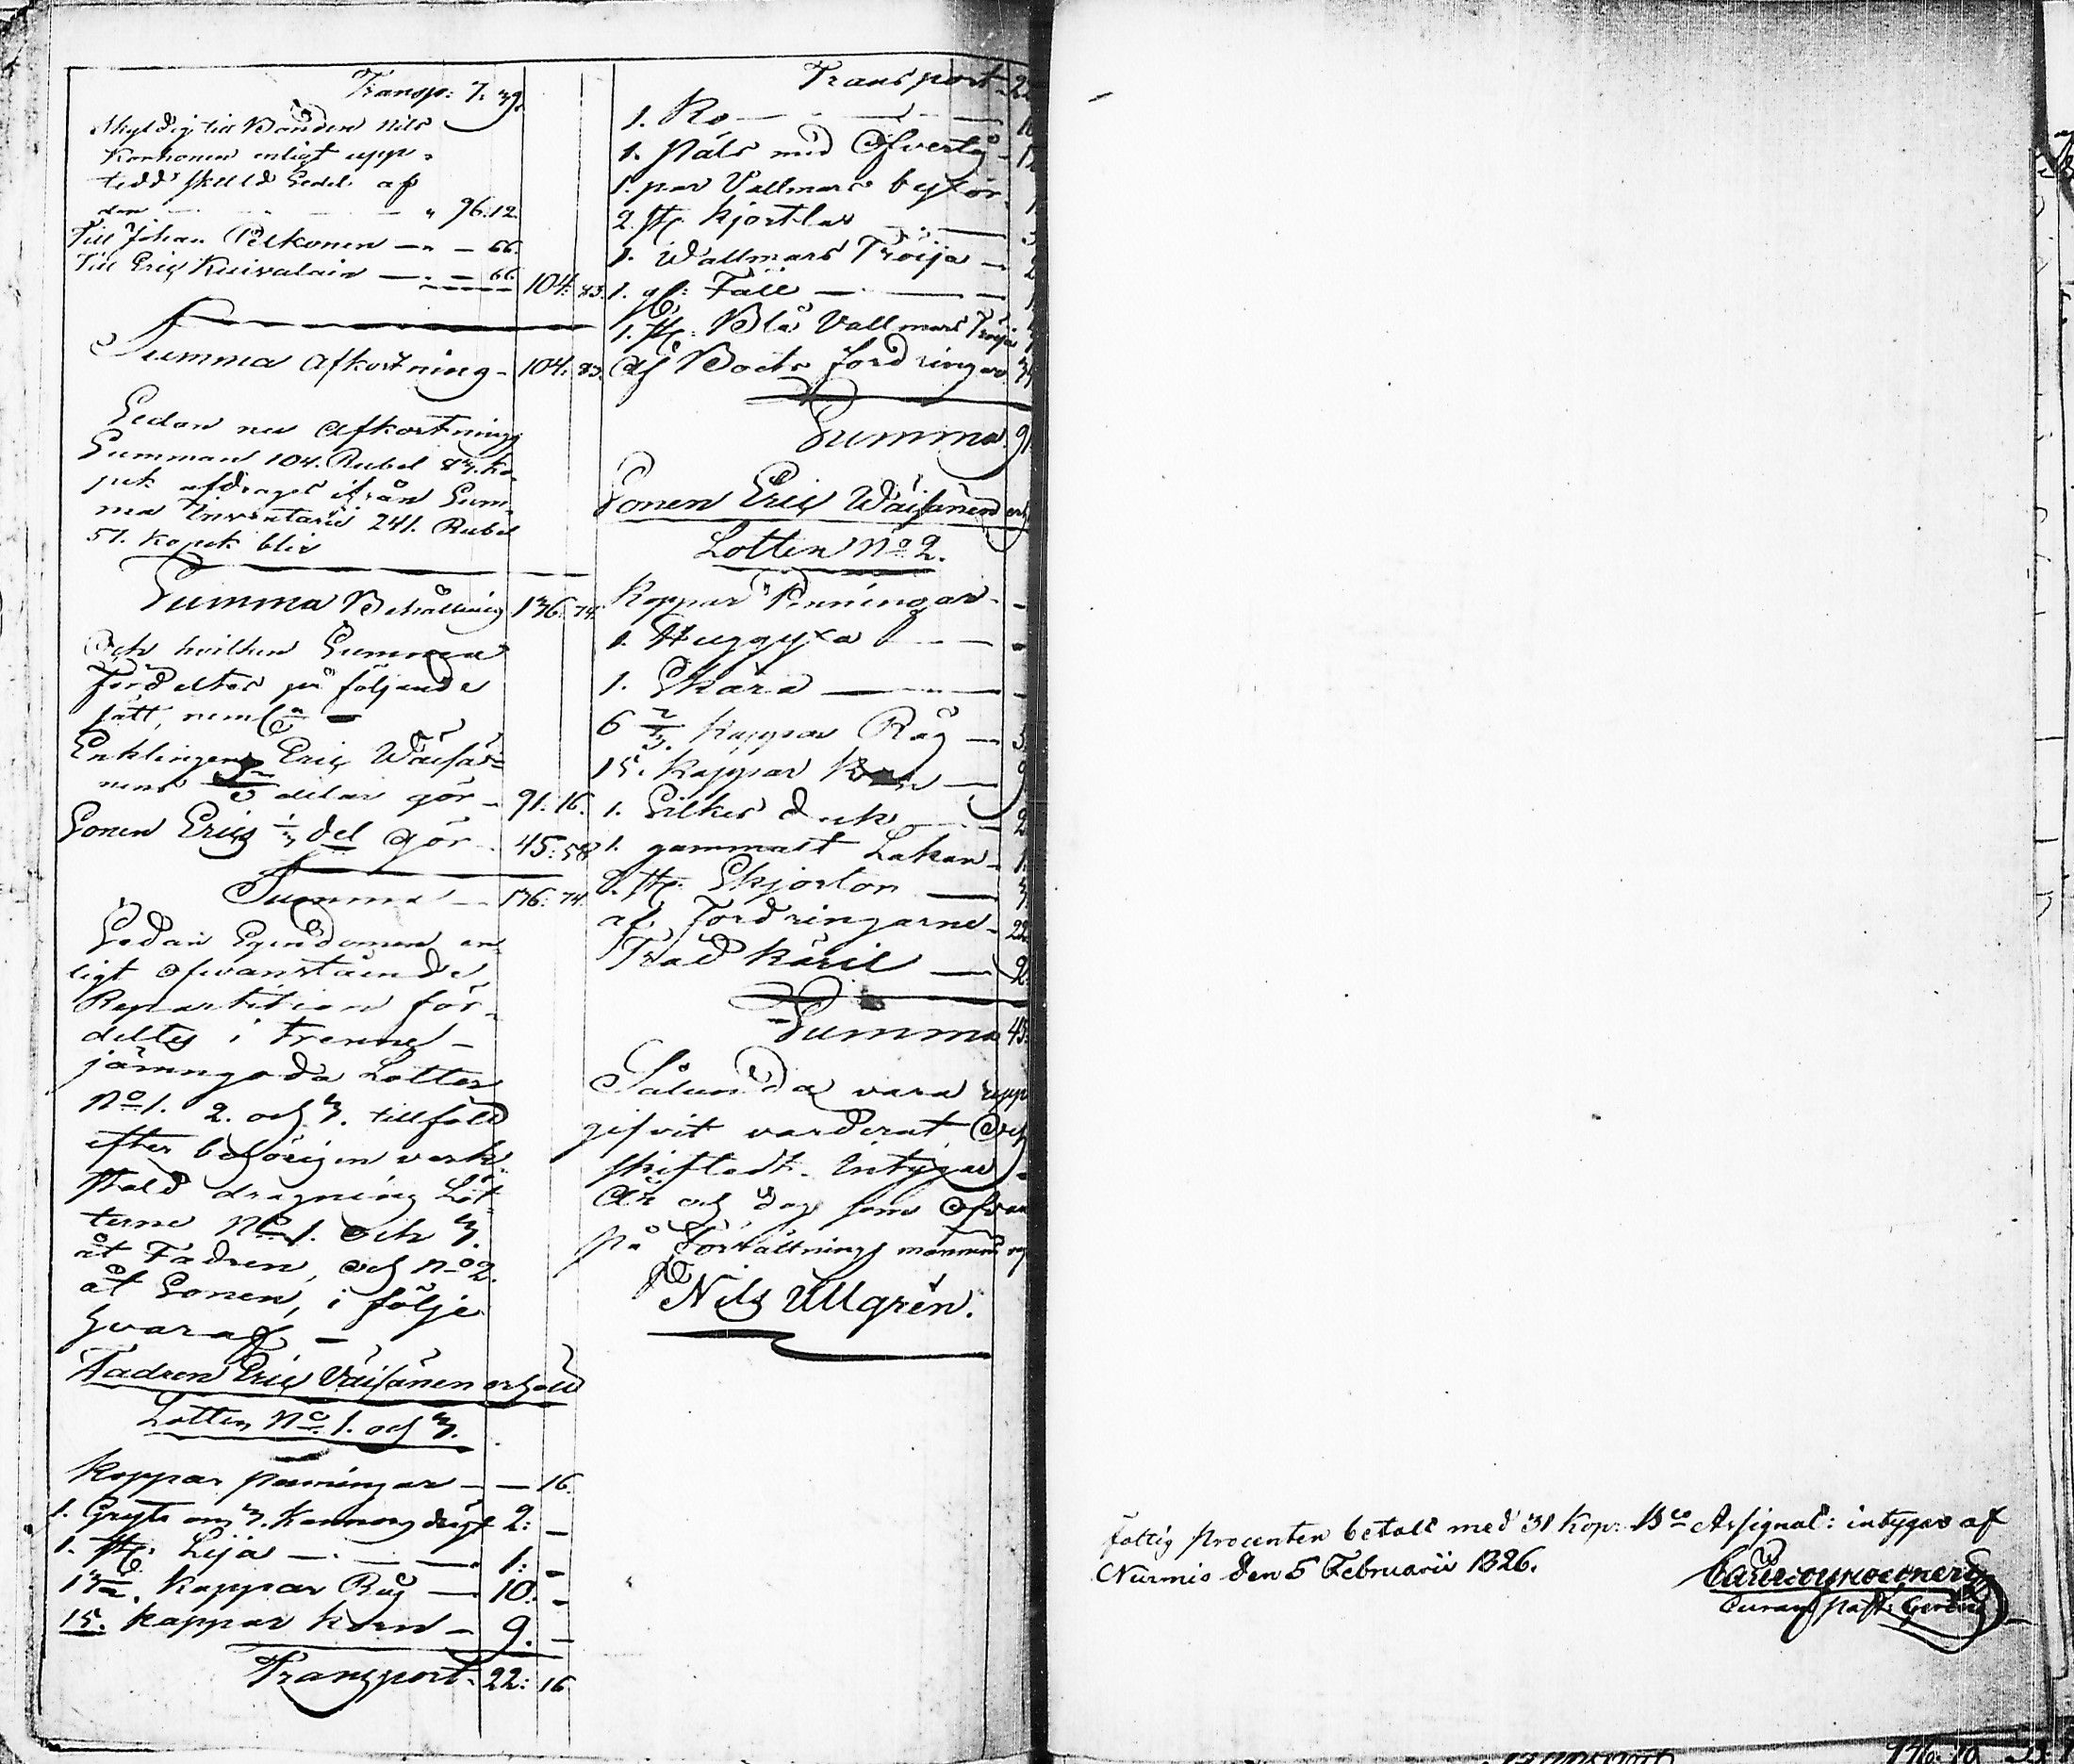 Transp: 7: 39.
Skyldig till Bonden Nils
Korhonen enligt upp-
tedd skuld Sedel af
den " 96:12.
Till Johan Pelkonen — — 66.
Till Eric Kuivalain — — 66. 104: 83.
Summa Afkortning - 104. 83.
Sedan nu Afkortnings
Summan 104. Rubel 83. Ko-
pek afdrages ifrån Sum-
ma Inventarii 241. Rubel
57. Kopek blir
Summa Behållning 136. 74.
Och hvilken Summa
fördeltes på följande
sätt, neml:n —
Enklingen Eric Wäisä-
nens 2/3 delar gör - 91. 16.
Sonen Erics 1/3 del gör - 45: 58
Summa — 136: 74.
Sedan Egendomen en-
ligt ofvanstående
Repartition för-
deltes i Trenne-
jämngoda Lotter
No 1. 2. och 3. tillföll
efter behörigen verk-
stäld dragning Lot-
terne No 1. Och 3.
åt Fadren, och No 2.
åt Sonen, i följe
hvaraf —
Fadren Eric Väisänen erhöll
Lotten No. 1. och 3.
Koppar penningar — — 16.
1. Gryta om 3. Kannors drägt 2: —
1. st: Lija — 1: —
13 1/2. Kappar Råg — 10: —
15. Kappar Korn — 9. —
Transport - 22: 16
Transport - 22
1. Ko — 10
1. Päls med Öfvertyg - 12
1. par Vallmars byxor
2. st: kjortlar
1. Wallmars Tröija — 2
1. gl: Fäll —
1. st: Blå Vallmars Tröija
Af Boets fordringar
Summa 91
Sonen Eric Wäisänen erh
Lotten No 2.
Koppar Penningar -
1. Huggyxa —
1. Skära —
6 2/3. Kappar Råg —
15. Kappar Korn — 9
1. Silkes duk — 2
1. gammalt Lakan - 1
2. st: Skjortor —
af Fordringarne - 22
Träd Käril — 2
Summa 45:
Sålunda vara upp
gifvit värderat Och
skiftadt. Intygar
År och dag som Ofvan
på Förrättnings mannens
Nils Ullgrén.
fattig Procenten betalt med 31 Kop: B:co Assignat: intygar af
Nurmis den 5 Februarii 1826.